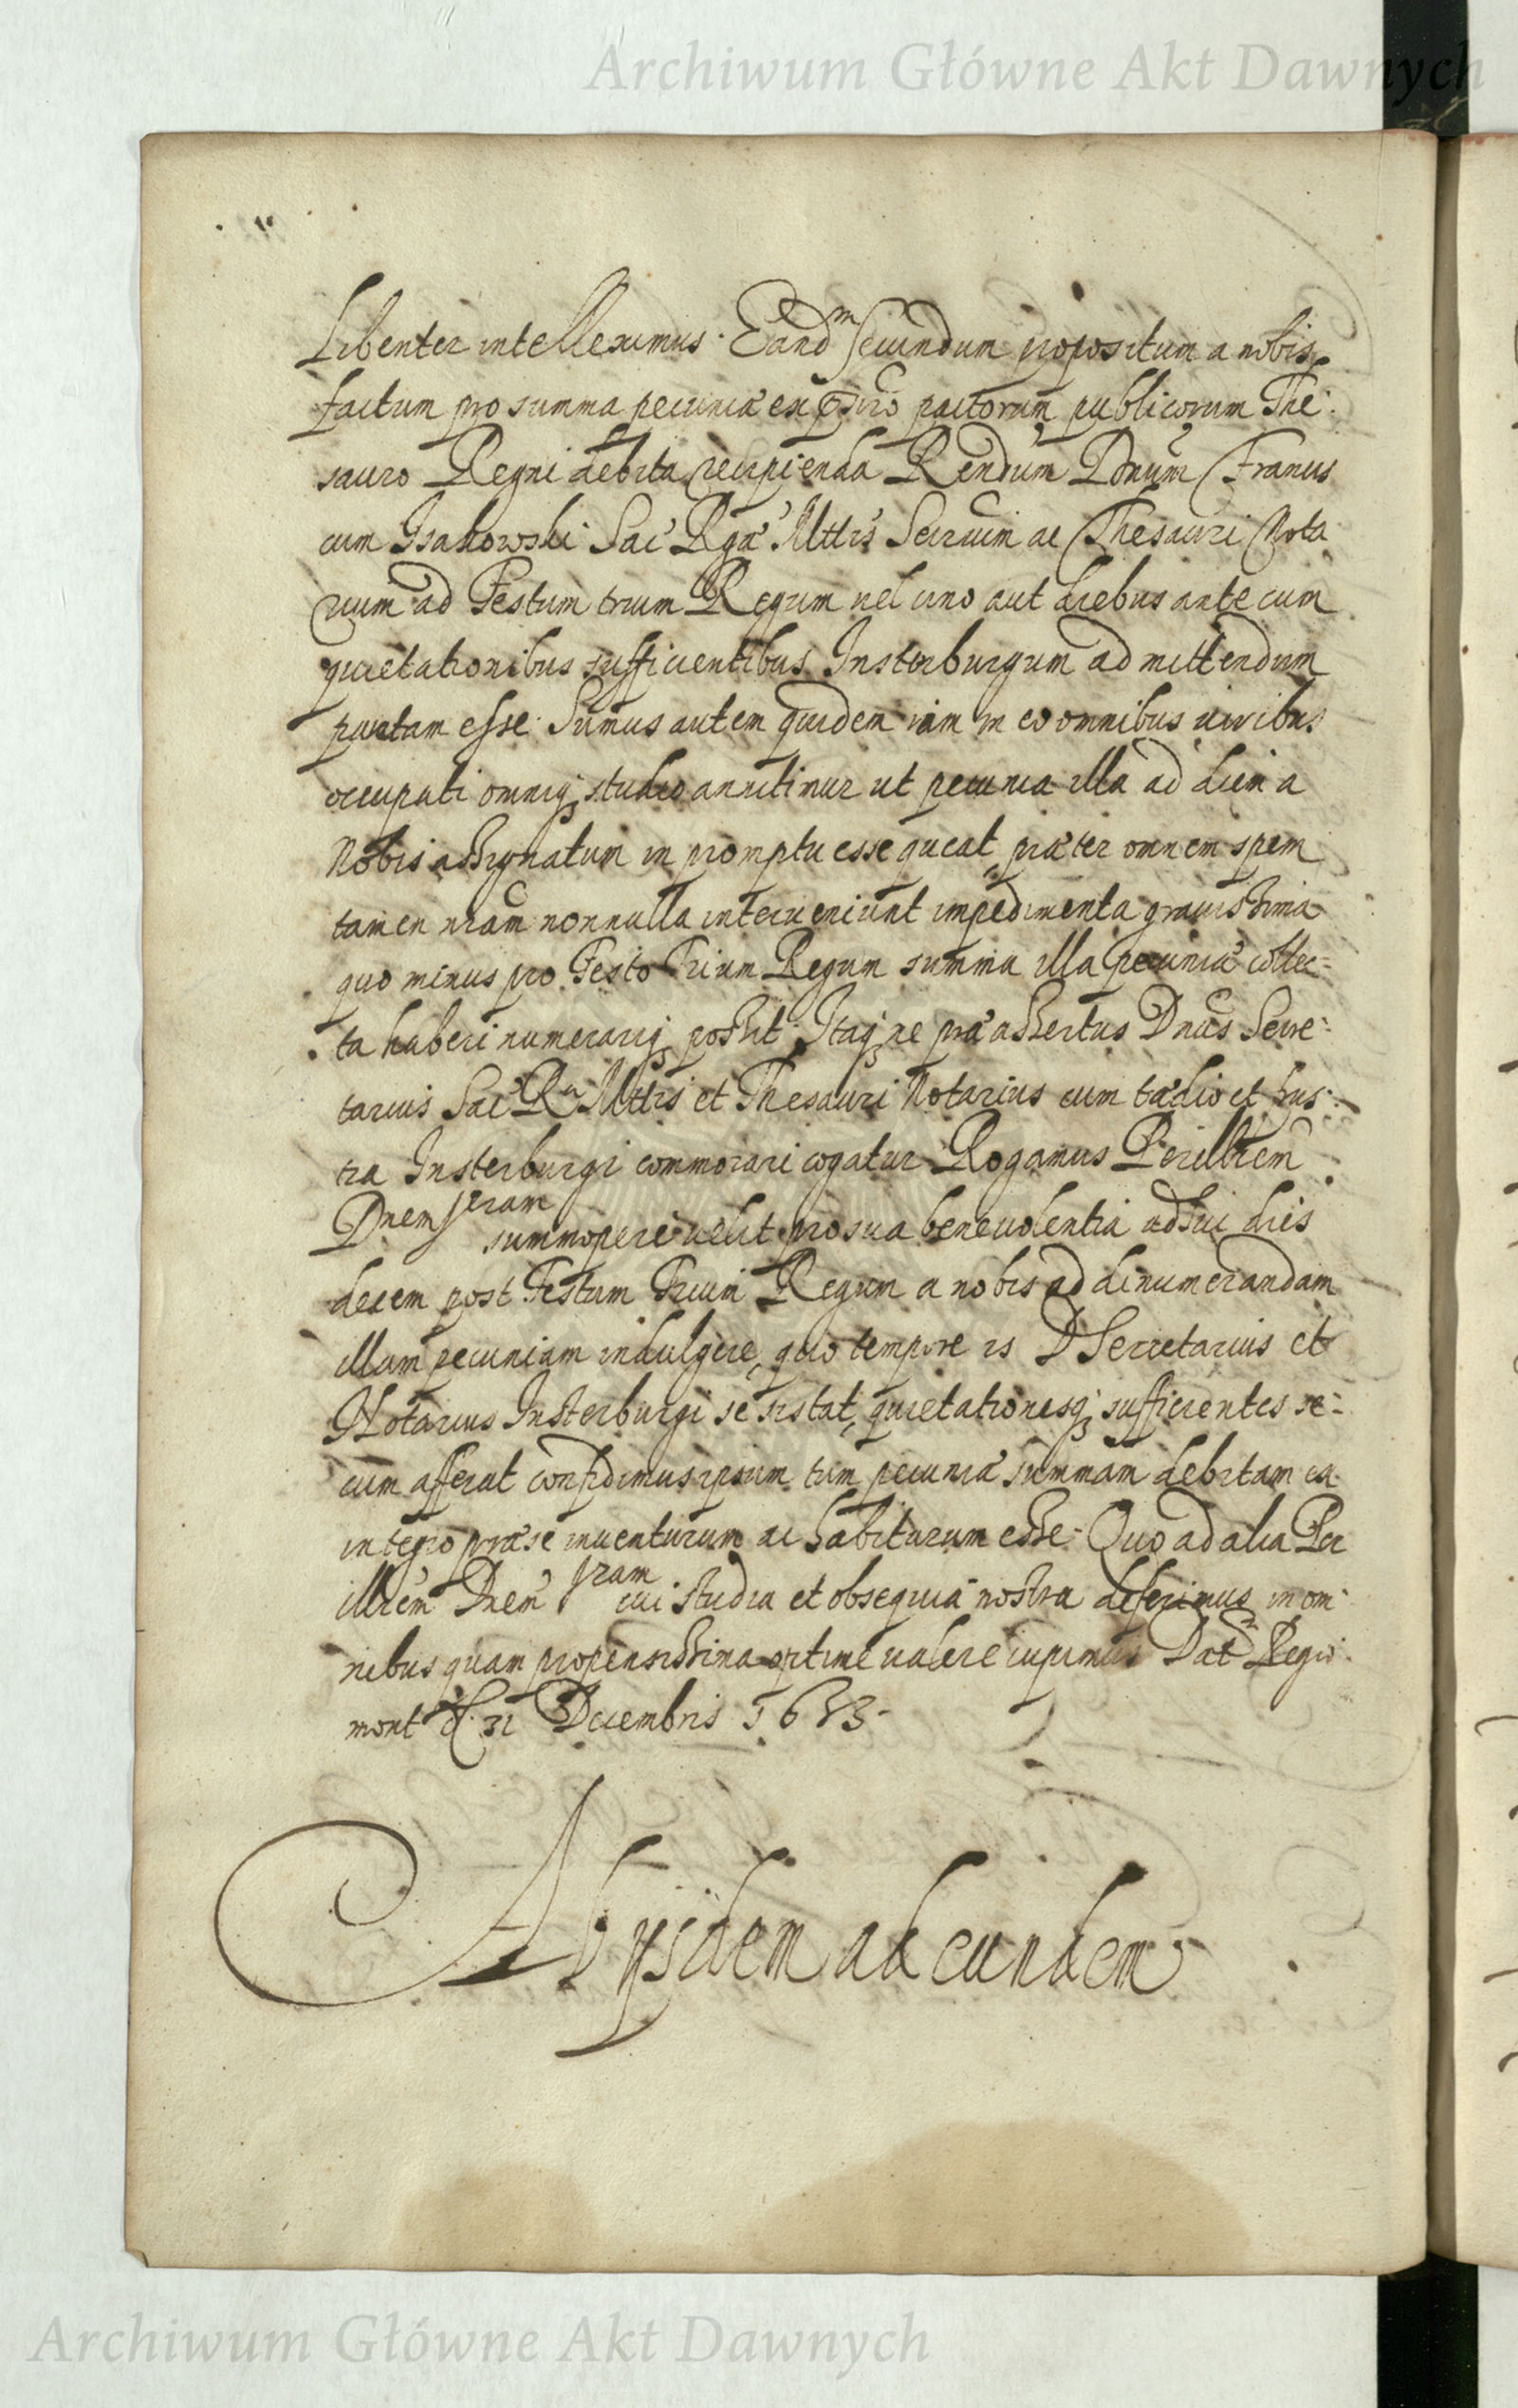 Archiwum Główne Akt Dawnych
Libenter intelleximus. Eand^m secundum propositum a nobis
factum pro summa pecuniæ ex pactorum publicorum The:
sauro Regni debita recipienda Rendum Dnum Francis
cum Isakowski Sac Rgæ Mttis Secrium ac Thesauri Nota
rium ad Festum trium Regum vel uno aut diebus ante cum
quietationibus sufficientibus Insterburgum ad mittendum
esse. Sumus autem quidem iam in eo omnibus viribus
occupati omniq studio annitimur ut pecunia illa ad diem a
Nobis assignatum in promptu esse queat, præter omnem spem
tamen nram nonnulla interveniunt impedimenta gravissima
quo minus pro Festo Trium Regum summa illa pecuniæ collec=
ta haberi numerariq possit. Itaq ne præassertus Dnus Secre:
tarius Sac Ræ Mttis et Thesauri Notarius cum tædio et frus:
tra Insterburgi commorari cogatur Rogamus Perillrem
Dnem vram summopere velit pro sua benevolentia adhuc dies
decem post Festum Trium Regum a nobis ad dinumerandam
illam pecuniam indulgere, quo tempore is D Secretarius et
Notarius Insterburgi se sistat, quietationesq sufficientes se:
cum afferat confidimus ipsum tum pecuniæ summam debitam ex
integro præse inventurum ac habiturum esse. Quo ad alia Per
illrem Dnem vram cui studia et obsequia nostra deferimus in om:
nibus quam propensissima optime valere cupimus Dat Regio:
mont d. 31 Decembris 1683.
Ab ijsdem ad eundem
Archiwum Główne Akt Dawnych